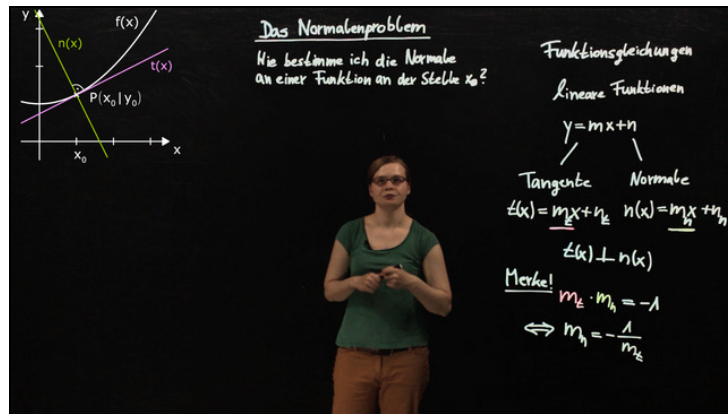 y
f(x)
n(x)
t(x)
P(x₀|y₀)
x₀
x
Das Normalenproblem
Wie bestimme ich die Normale
an einer Funktion an der Stelle x₀?
Funktionsgleichungen
lineare Funktionen
y=mx+n
Tangente Normale
t(x)=mₜx+nₜ n(x)=mₙx+nₙ
t(x)⊥n(x)
Merke!
mₜ·mₙ=-1
⇔ mₙ=-1/mₜ